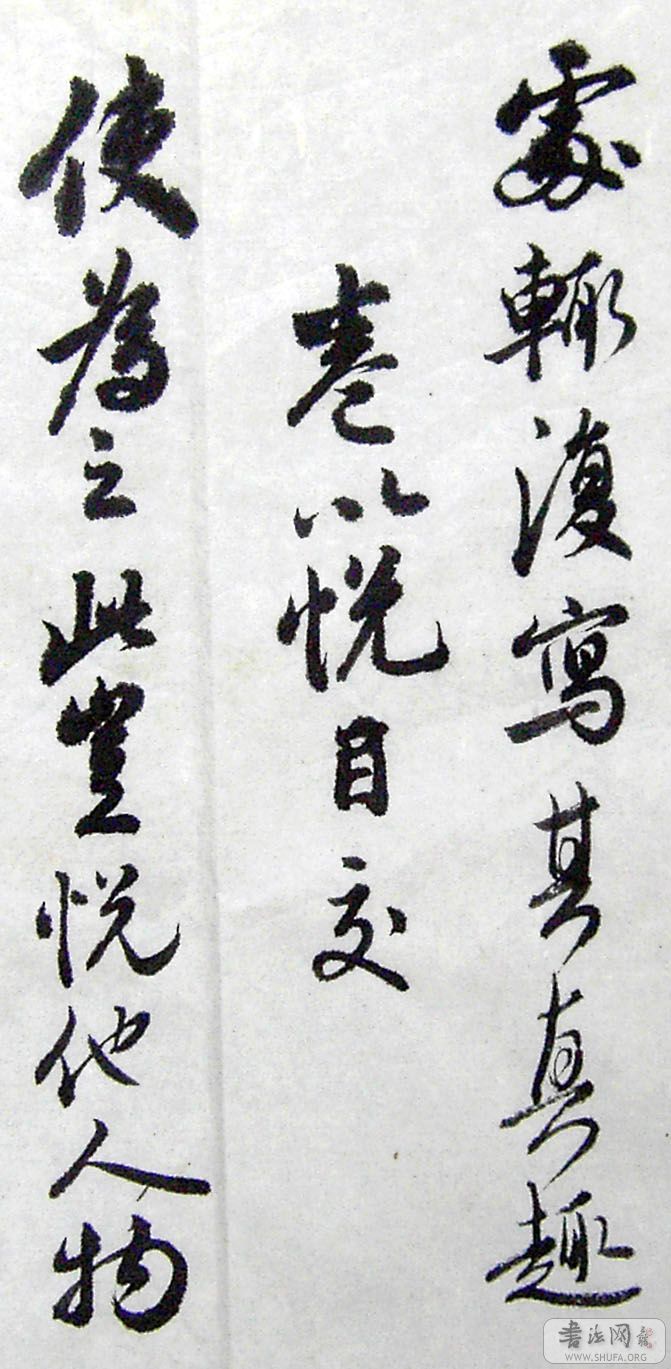 處輒復寫其真趣
卷以悦目交
使為之此豈悦他人物
書法网
WWW.SHUFA.ORG